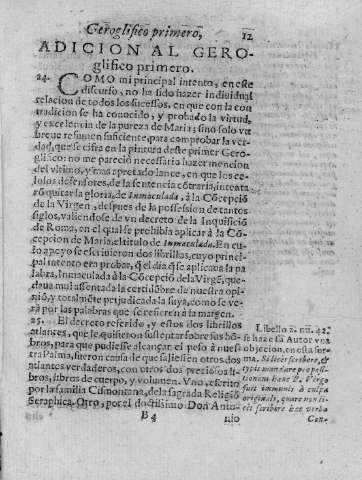 Geroglifico primero, 12
ADICION AL GERO-
glifico primero.
24. COMO mi principal intento, en este
discurso, no ha sido hazer individual
relacion de todos los sucessos, en que con la con
tradicion se ha conocido, y probado la virtud,
y excelencia de la pureza de Maria; sino solo vn
breue resumen suficiente, para comprobar la ver-
dad, que se cifra en la pintura deste primer Gero-
glifico: no me pareciò necessario hazer mencion
del vltimo, y mas apretado lance, en que los ce-
losos defensores, de la sentencia cõtraria, intenta
rõ quitar la gloria, de Inmaculada, à la Cõcepciõ
de la Virgen, despues de la possession de tantos
siglos, valiendose de vn decreto de la Inquisiciõ
de Roma, en el qual se prohibia aplicar à la Cõ-
cepcion de Maria, el titulo de Inmaculada. En cu-
yo apoyo se escriuieron dos librillos, cuyo princi-
pal intento era probar, q̃ el dia q̃ se aplicaua la pa
labra, Inmaculada à la Cõcepciõ de la Virgẽ, que-
daua mal assentada la certidũbre de nuestra opi-
niõ, y totalmẽte perjudicada la suya, como se ve-
rà por las palabras que se refieren à la margen.
25. El decreto referido, y estos dos librillos
atlantes, que le quisieron sustentar sobre sus hõ-
bros, para que pudiesse alcançar el peso à nues
tra Palma, fueron causa de que saliessen otros dos
atlantes verdaderos, con otros dos preciosos li-
bros, libros de cuerpo, y volumen. Vno, escrito
por la familia Cismontana, de la sagrada Religiõ
Seraphica. Otro, por el doctissimo Don Anto-
Libello 2. nu. 42.
se haze su Autor vna
objecion, en esta for-
ma. Si licet scribere, &
typis mandare propositi-
tionem hanc B. Virgo
fuit immunis à culpa
originali, quare non li-
cet scribere hæc verba
Con-
B 4
nio